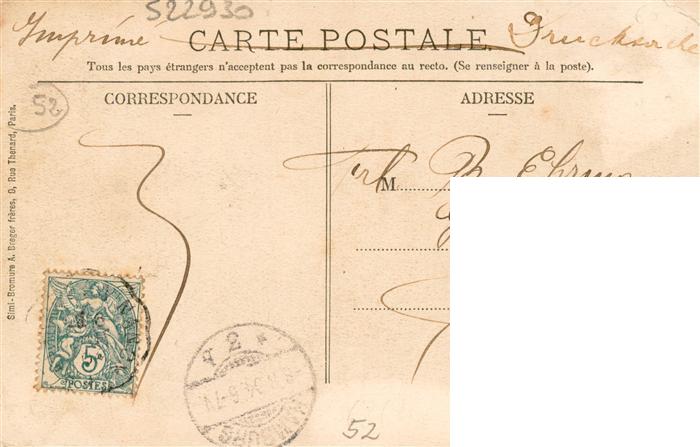 522930
Imprimé CARTE POSTALE Drucksache
Tous les pays étrangers n'acceptent pas la correspondance au recto. (Se renseigner à la poste).
52
CORRESPONDANCE
ADRESSE
Simi-Bromure A. Breger frères, 9, Rue Thenard, Paris.
M
5c
POSTES
52